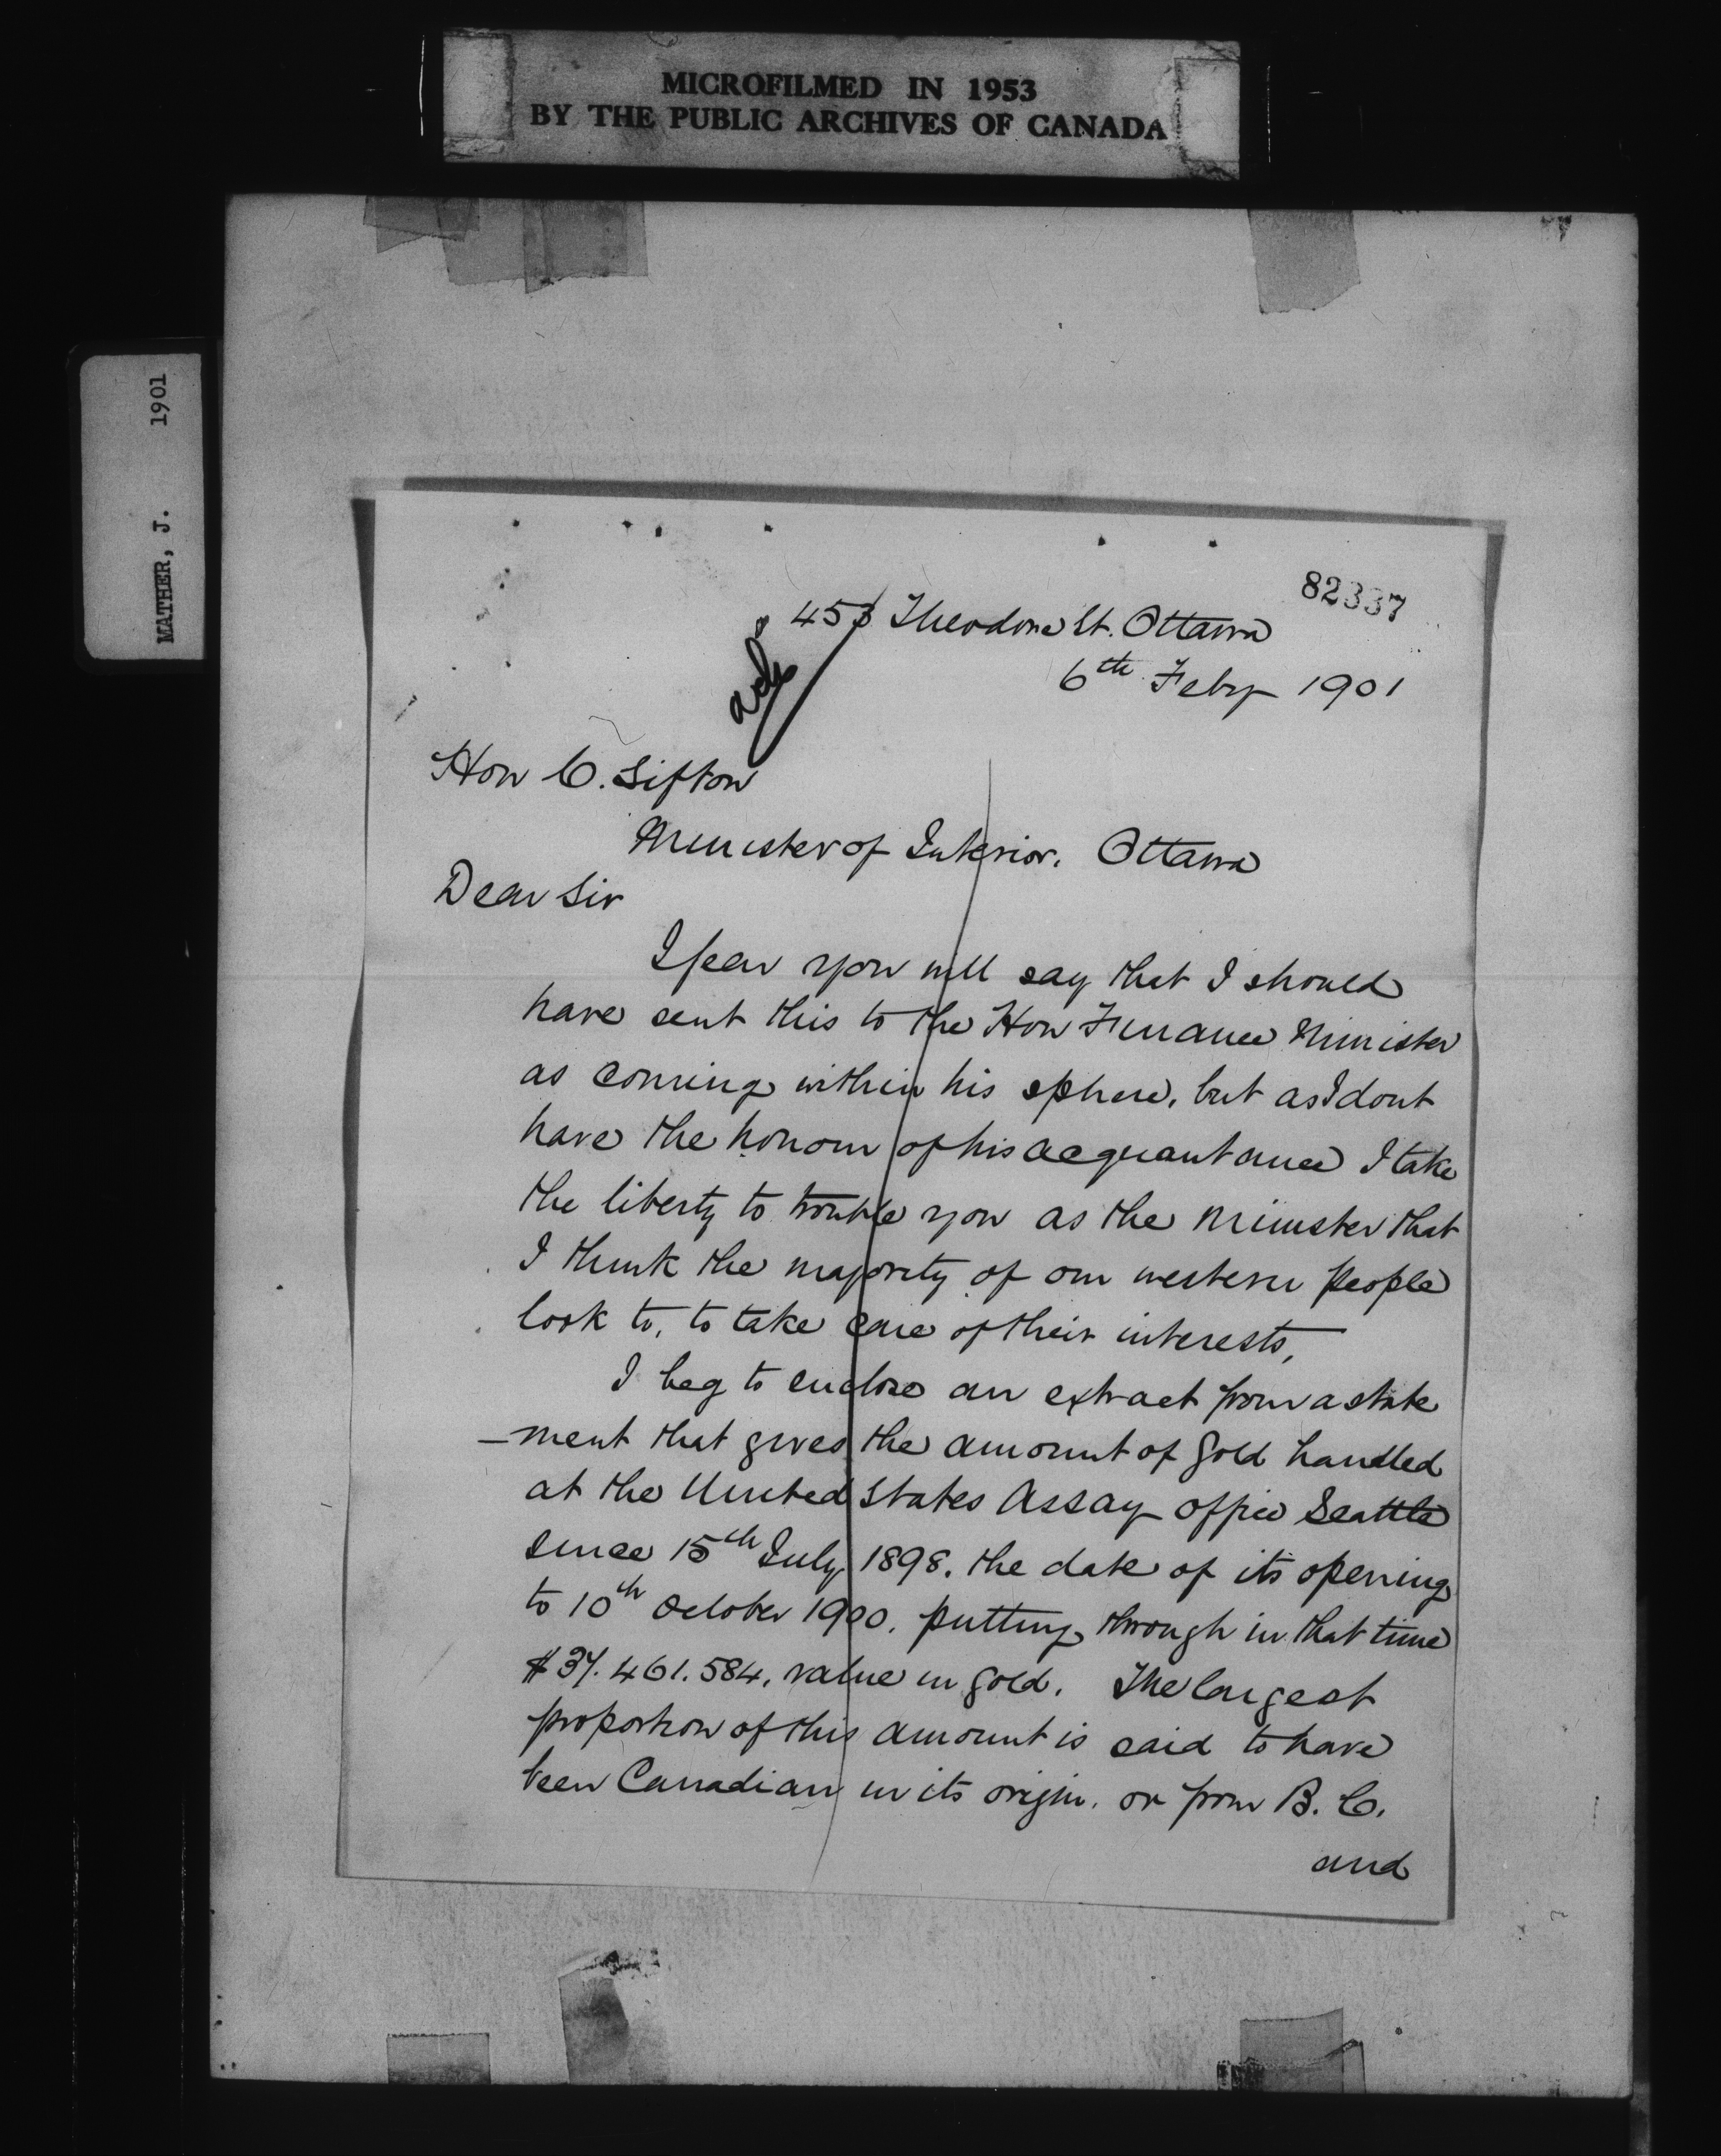 MICROFILMED IN 1953
BY THE PUBLIC ARCHIVES OF CANADA
MATHER, J. 1901
82337
453 Theodore St. Ottawa
6th Feby 1901
Hon C. Sifton
Minister of Interior. Ottawa
Dear Sir
I fear you will say that I should
have sent this to the Hon Finance Minister
as coming within his sphere, but as I dont
have the honour of his acquantance I take
the liberty to trouble you as the Minister that
I think the majority of our western people
look to, to take care of their interests,
I beg to enclose an extract from a state
-ment that gives the amount of gold handled
at the United States Assay office Seattle
since 15th July 1898. the date of its opening
to 10th October 1900. putting through in that time
$37.461.584. value in gold. The largest
proportion of this amount is said to have
been Canadian in its origin. or from B. C.
and